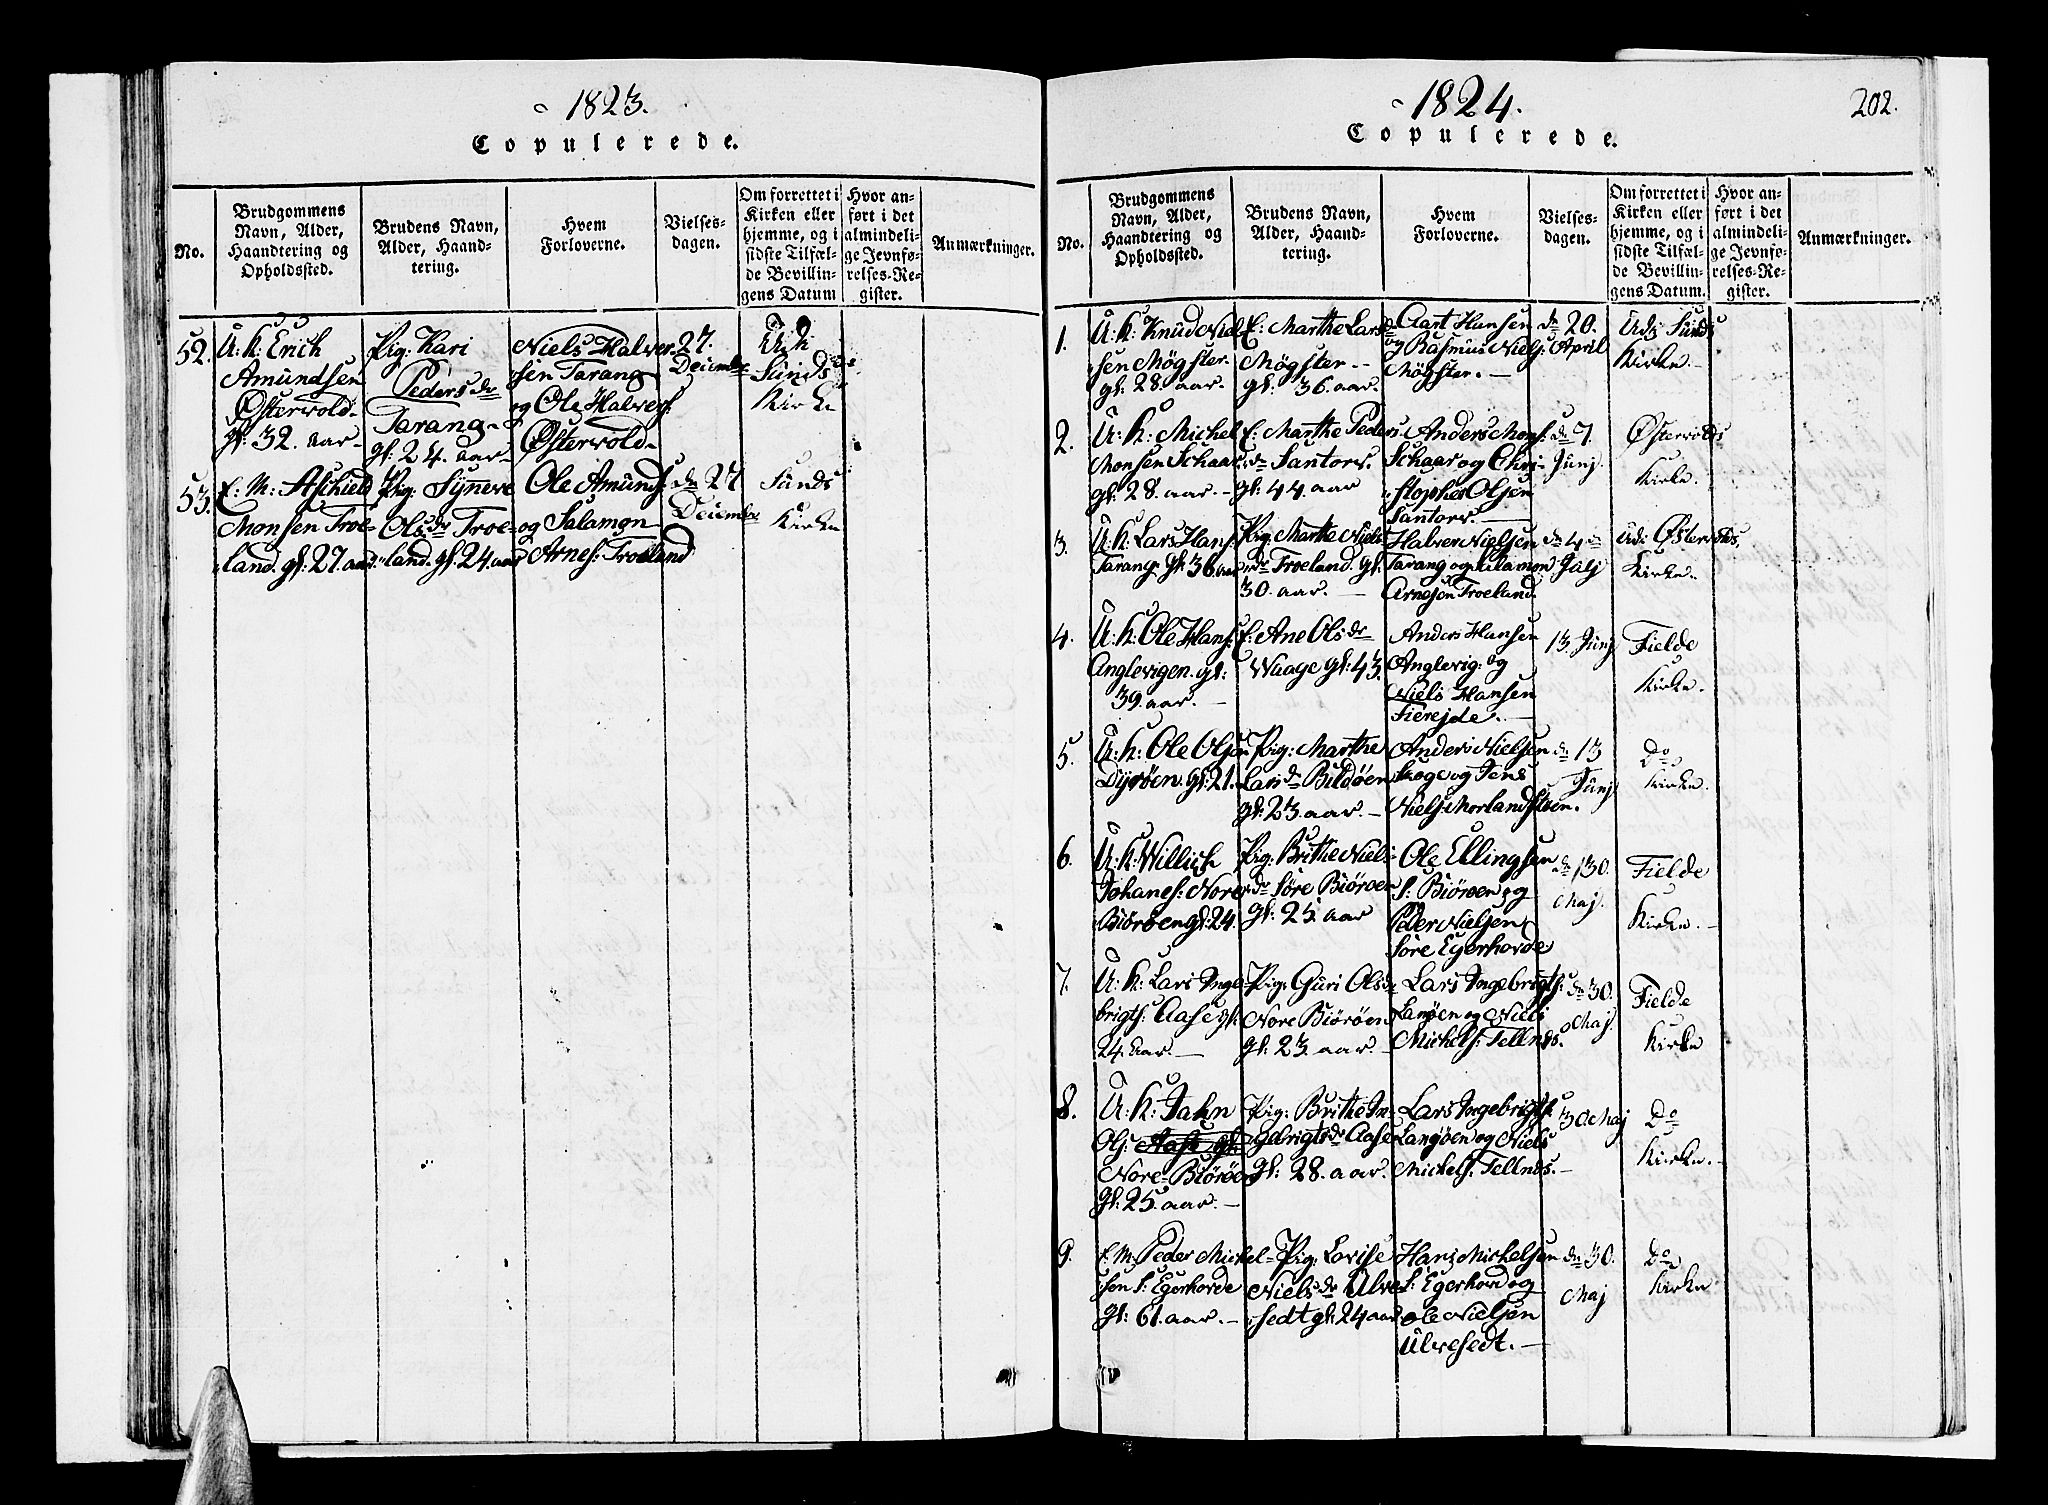 1823.
Copulerede.
No.
Brudgommens
Navn, Alder,
Haandtering og
Opholdssted.
Brudens Navn,
Alder, Haand-
tering.
Hvem
Forloverne.
Vielses-
dagen.
Om forrettet i
Kirken eller
hjemme, og i
sidste Tilfæl-
de Bevillin-
gens Datum
Hvor an-
ført i det
almindeli-
ge Jevnfø-
relses-Re-
gister.
Anmærkninger.
52.
U: K: Erich
Amundsen
Østervold.
gl: 32. aar
Pig: Kari
Peders dr
Tarang
gl: 24. aar
Niels Halver
sen Tarang
og Ole Halvers:
Østervold
27.
Decembr
Sunds
Kirke
53.
E: M: Aschield
Monsen Troe-
land. gl: 27. aar
Pig: Syneve
Ols dr Troe-
land. gl: 24. aar
Ole Amunds:
og Salamon
Arnes: Troeland
dn 27
Decembr
Sunds
Kirke
1824.
202.
Copulerede.
No.
Brudgommens
Navn, Alder,
Haandtering og
Opholdssted.
Brudens Navn,
Alder, Haand-
tering.
Hvem
Forloverne.
Vielses-
dagen.
Om forrettet i
Kirken eller
hjemme, og i
sidste Tilfæl-
de Bevillin-
gens Datum.
Hvor an-
ført i det
almindeli-
ge Jevnfø-
relses-Re-
gister.
Anmærkninger.
1.
U: K: Knud Niel
sen Møgster.
gl: 28. aar.
E: Marthe Lars dr
Møgster
gl: 36. aar.
Aart Hansen
og Rasmus Niels:
Møgster.
dn 20.
April
Udi Sunds
Kirke.
2.
U: K: Michel
Monsen Schaar
gl: 28. aar.
E: Marthe Peders
dr Santorv.
gl: 44. aar
Anders Mons:
Schaar og Chri-
stopher Olsen
Santorv.
dn 7.
Junj.
Østervolds
Kirke.
3.
U: K: Lars Hans:
Tarang gl: 36. aar
Pig: Marthe Niels
dr Troeland. gl:
30. aar.
Halver Nielsen
Tarang og Salamon
Arnesen Troeland.
dn 4 de
Julj
Udi Østervolds,
Kirke.
4.
U: K: Ole Hans:
Anglevigen. gl:
39. aar.
E: Ane Ols dr
Waage gl: 43.
Anders Hansen
Anglevig: og
Niels Hansen
13. Junj
Fielde
Kirke.
5.
U: K: Ole Olsen
Dyrøen. gl: 21.
Pig: Marthe
Lars dr Bildøen
gl: 23. aar.
Anders Nielsen
Skoge og Jens
Niels: Morlandstøen.
dn 13
Junj
Do
Kirke.
6.
U: K: Willich
Johanes: Nore
Biørøen gl: 24.
Pig: Brithe Niels
dr Søre Biørøen
gl: 25. aar
Ole Ellingsen
S: Biørøen og
Peder Nielsen
Søre Egerhovde
dn 30.
Maj.
Fielde
Kirke.
7.
U: K: Lars Inge
brigts: Aase gl:
24. aar.
Pig: Guri Ols dr
Nore Biørøen
gl: 23. aar.
Lars Ingebrigts:
Langøen og Niels
Michels: Tellnes.
dn 30.
Maj.
Fielde
Kirke
8.
U: K: Jahn
Ols: Aase gl:
Nore-Biørøen
gl: 25. aar.
Pig: Brithe In-
gebrigts dr Aase
gl: 28. aar.
Lars Ingebrigts:
Langøen og Niels
Michels: Tellnes.
30. Maj
Do
Kirke.
9.
E: M: Peder Michel-
sen S: Egerhovde
gl: 61. aar.
Pig: Lavise
Niels dr Ulve
sedt gl: 24 aar
Hans Michelsen
S: Egerhovd og
Ole Nielsen
Ulvesedt.
dn 30.
Maj
Do
Kirke